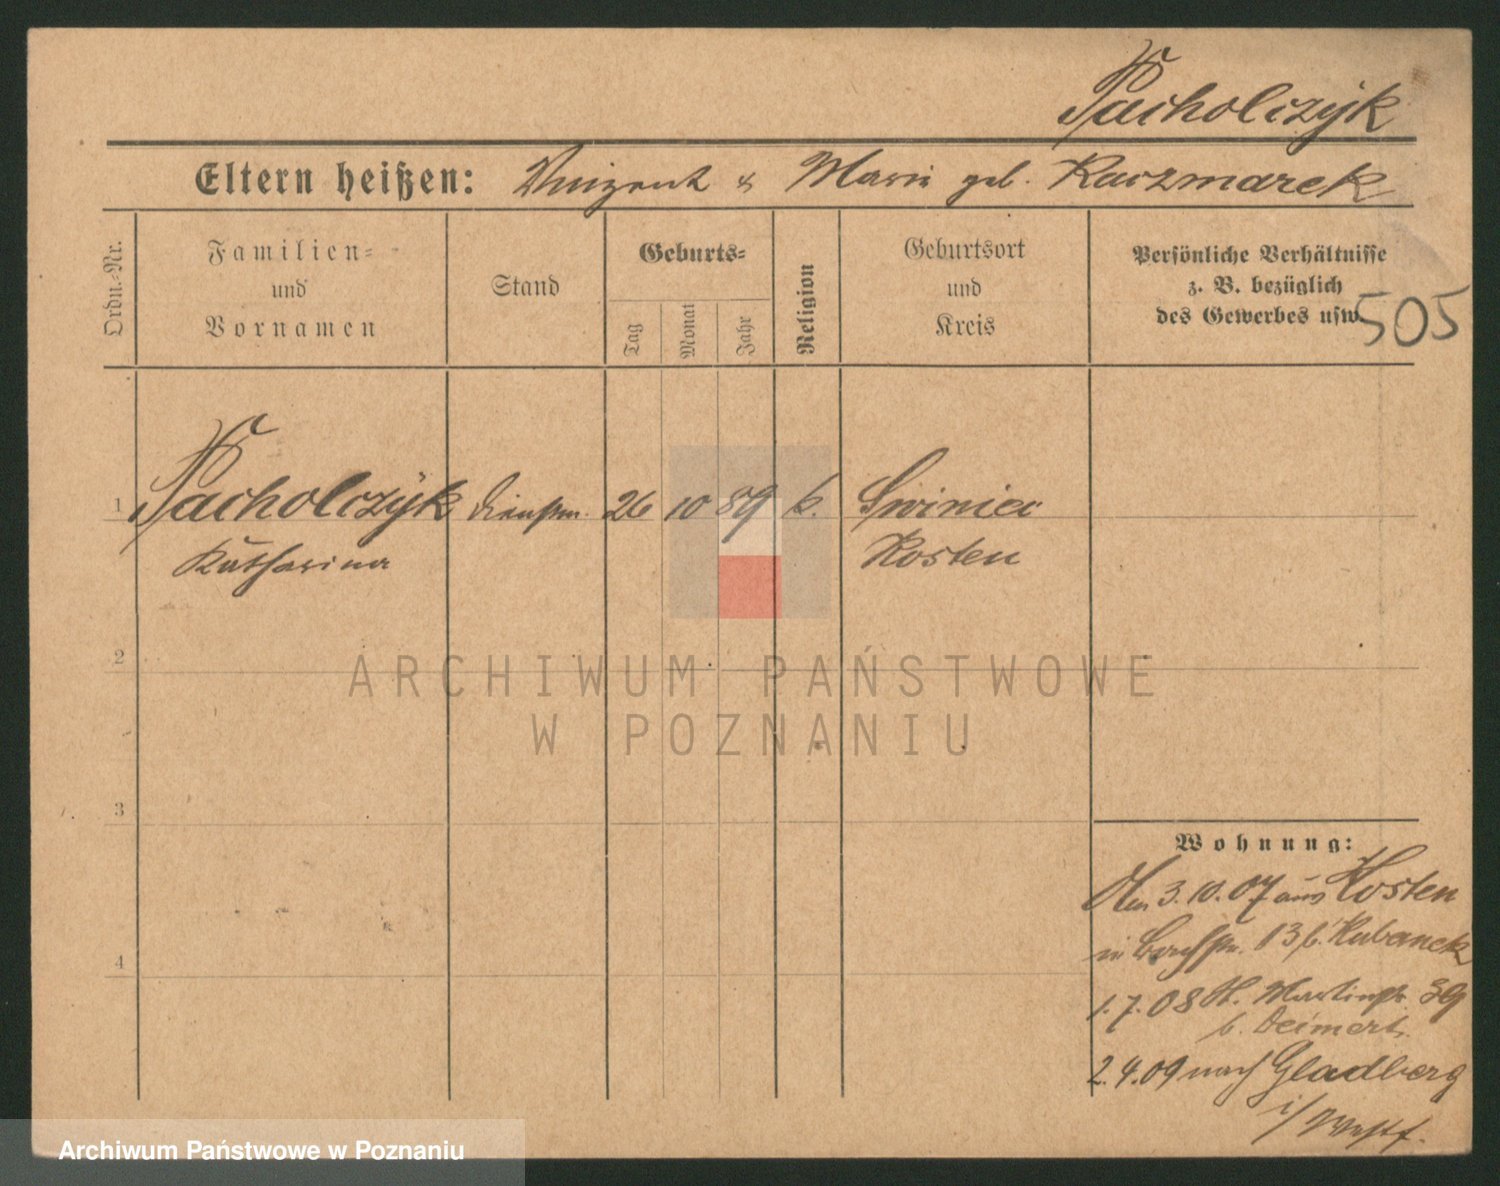 Pacholczÿk
Eltern heißen: Vinzent & Marie geb. Kaczmarek
Ordn.-Nr.
Familien-
und
Vornamen
Stand
Geburts-
Tag
Monat
Jahr
Religion
Geburtsort
und
Kreis
Persönliche Verhältnisse
z. B. bezüglich
des Gewerbes usw.
505
1 Pacholczÿk Dienstm. 26 10 89 k. Swiniec
Katharina Kosten
2
3
4
Wohnung:
3.10.07 aus Kosten
in 13 b. Rubanek
1.7.08 St. Martinstr. 39
b. Deimert
2.4.09 nach Gladberg
i/ Westf.
ARCHIWUM PAŃSTWOWE
W POZNANIU
Archiwum Państwowe w Poznaniu